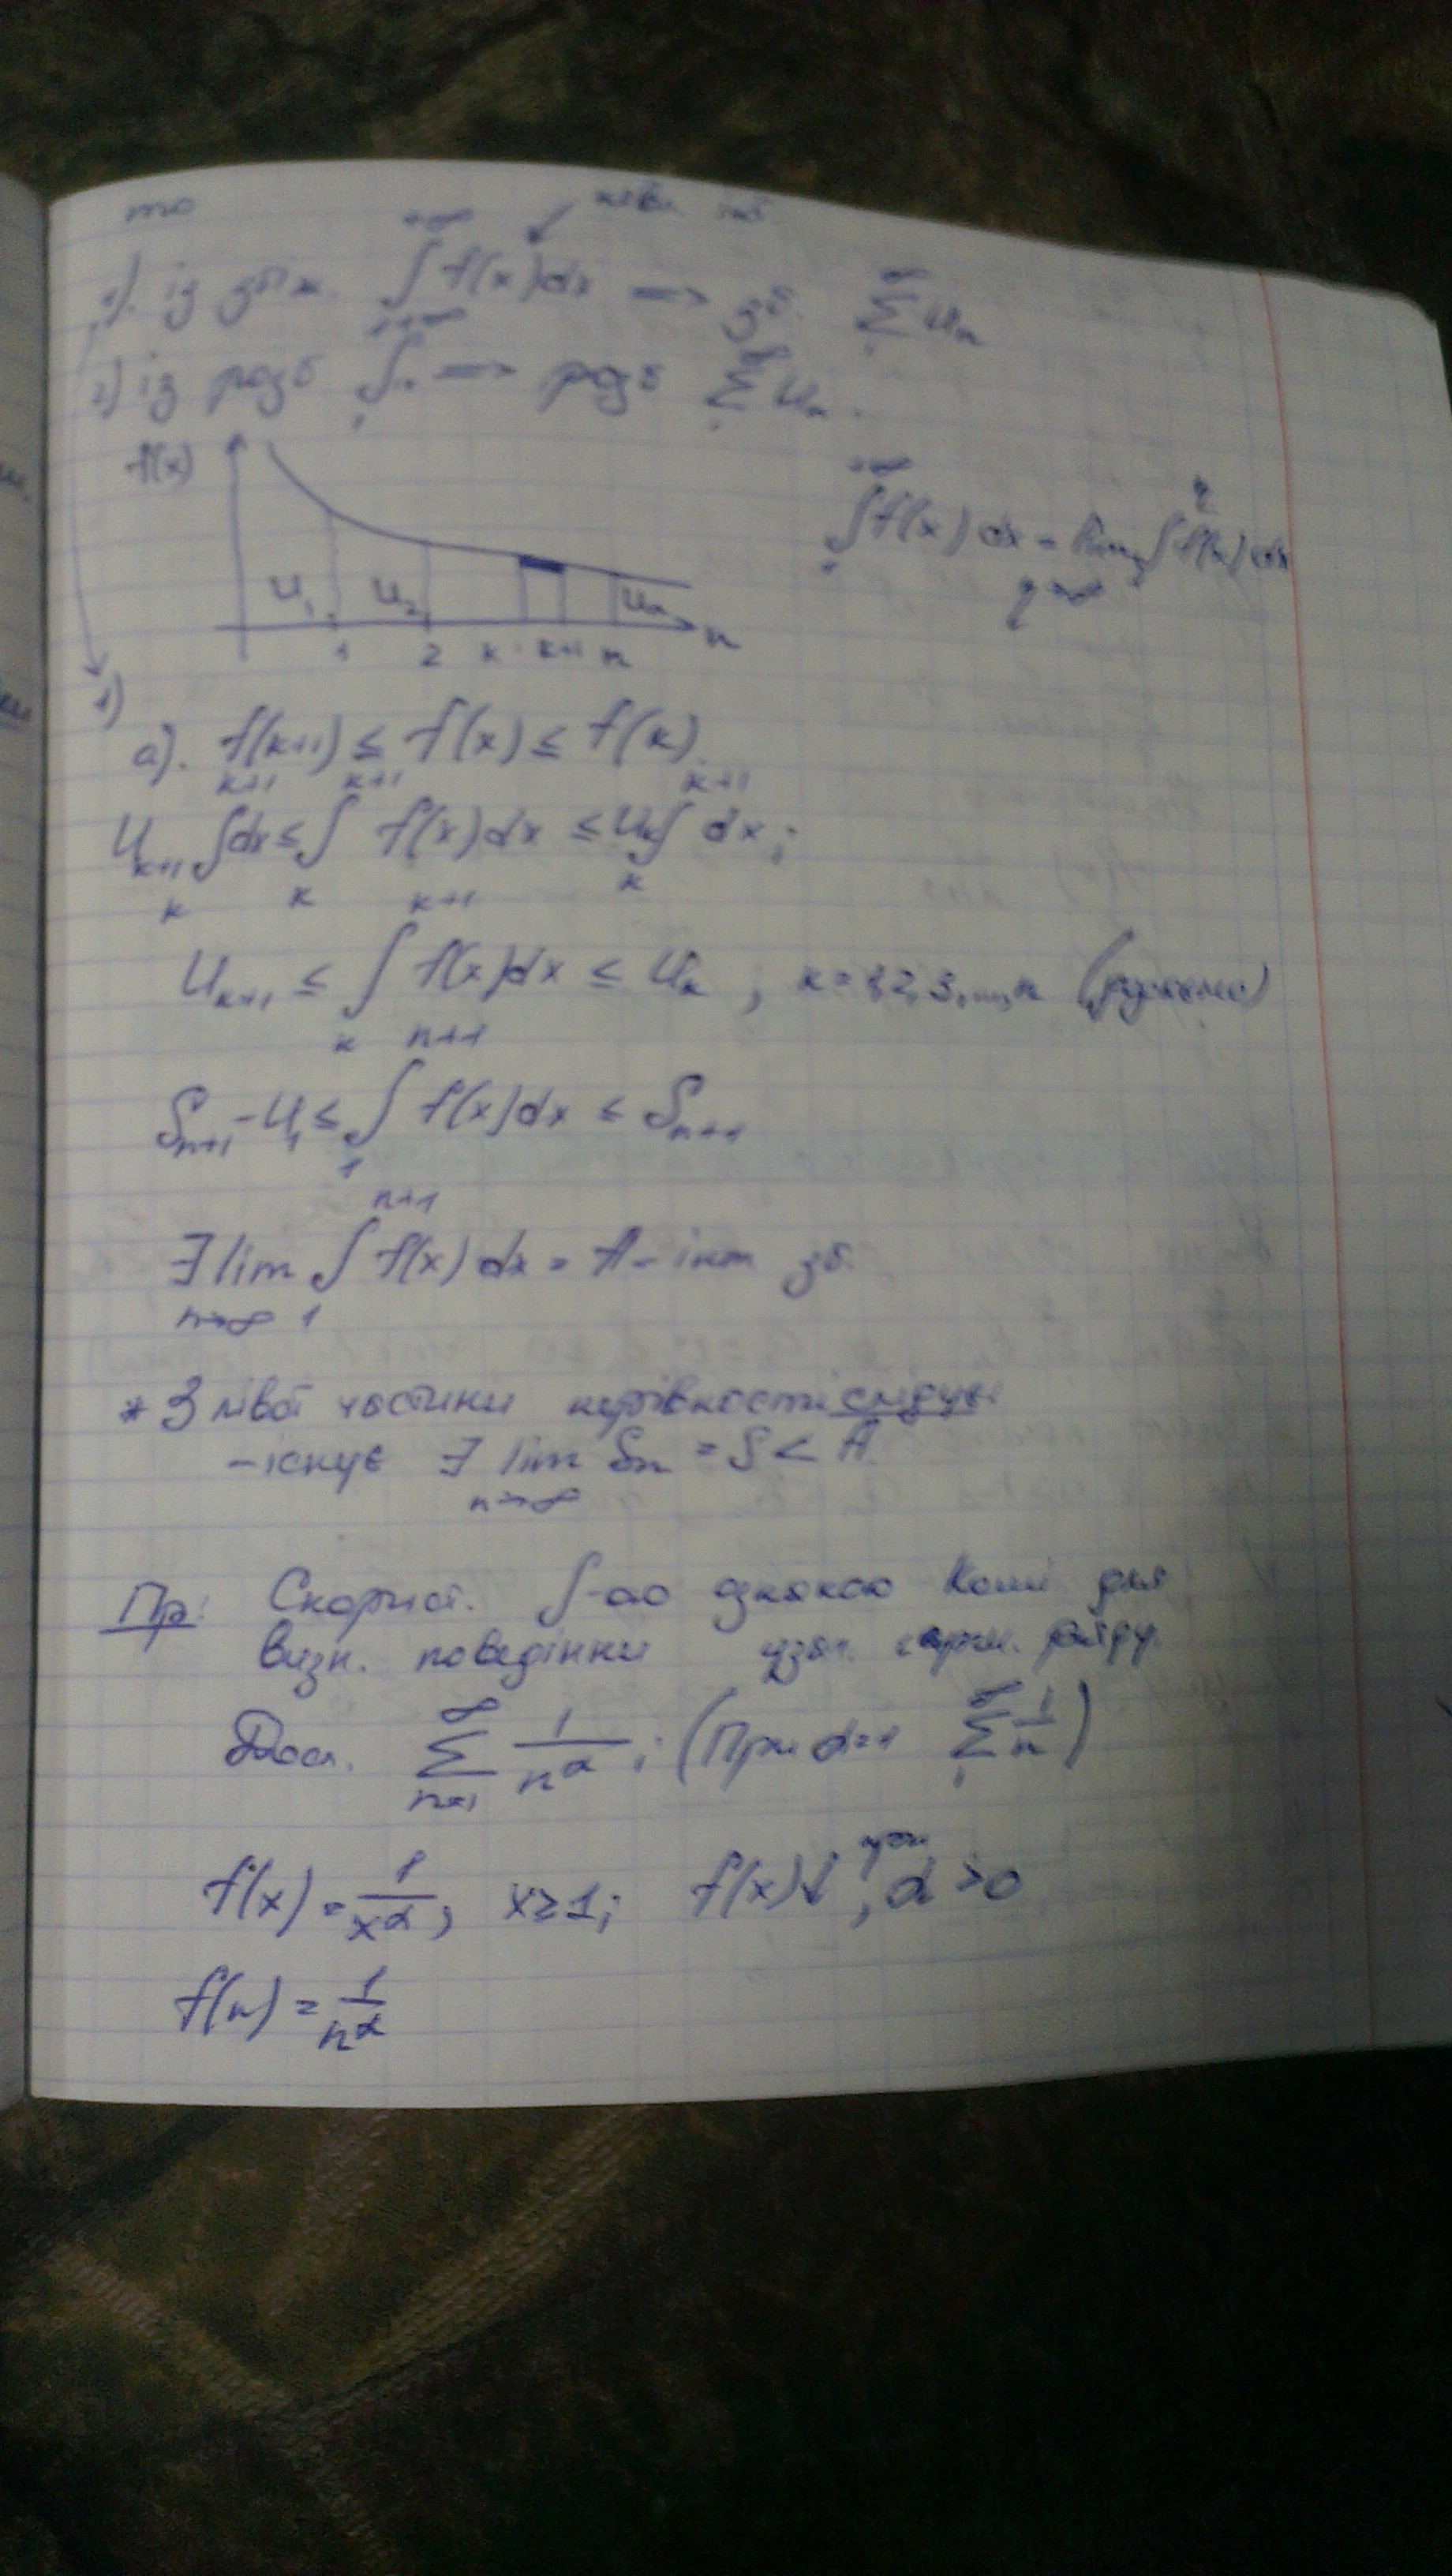 то
1). із збіж. ∫ f(x)dx => зб. ∑ Uₙ
2) із розб ∫ => розб ∑ Uₙ.
f(x)
U₁ U₂ Uₙ
1 2 к к+1 n n
+∞∫f(x)dx = lim ∫f(x)dx
1)
а). f(к+1) ≤ f(x) ≤ f(к).
Uₖ₊₁ ∫ₖᵏ⁺¹ dx ≤ ∫ₖᵏ⁺¹ f(x)dx ≤ Uₖ ∫ₖᵏ⁺¹ dx;
Uₖ₊₁ ≤ ∫ₖᵏ⁺¹ f(x)dx ≤ Uₖ , к = 1,2,3,...,n
Sₙ₊₁ - U₁ ≤ ∫₁ⁿ⁺¹ f(x)dx ≤ Sₙ₊₁
∃ lim ∫₁ⁿ⁺¹ f(x)dx = A - інт зб.
n→∞
* З лівої частини нерівності слідує
- існує ∃ lim Sₙ = S < A
n→∞
Пр: Скорист. ∫-ою ознакою Коші для
визн. поведінки узаг. гарм. ряду.
Досл. ∑ₙ₌₁^∞ 1/n^α ; (При α=1 ∑₁^∞ 1/n)
f(x) = 1/x^α, x≥1; f(x)↓, при α>0
f(n) = 1/n^α